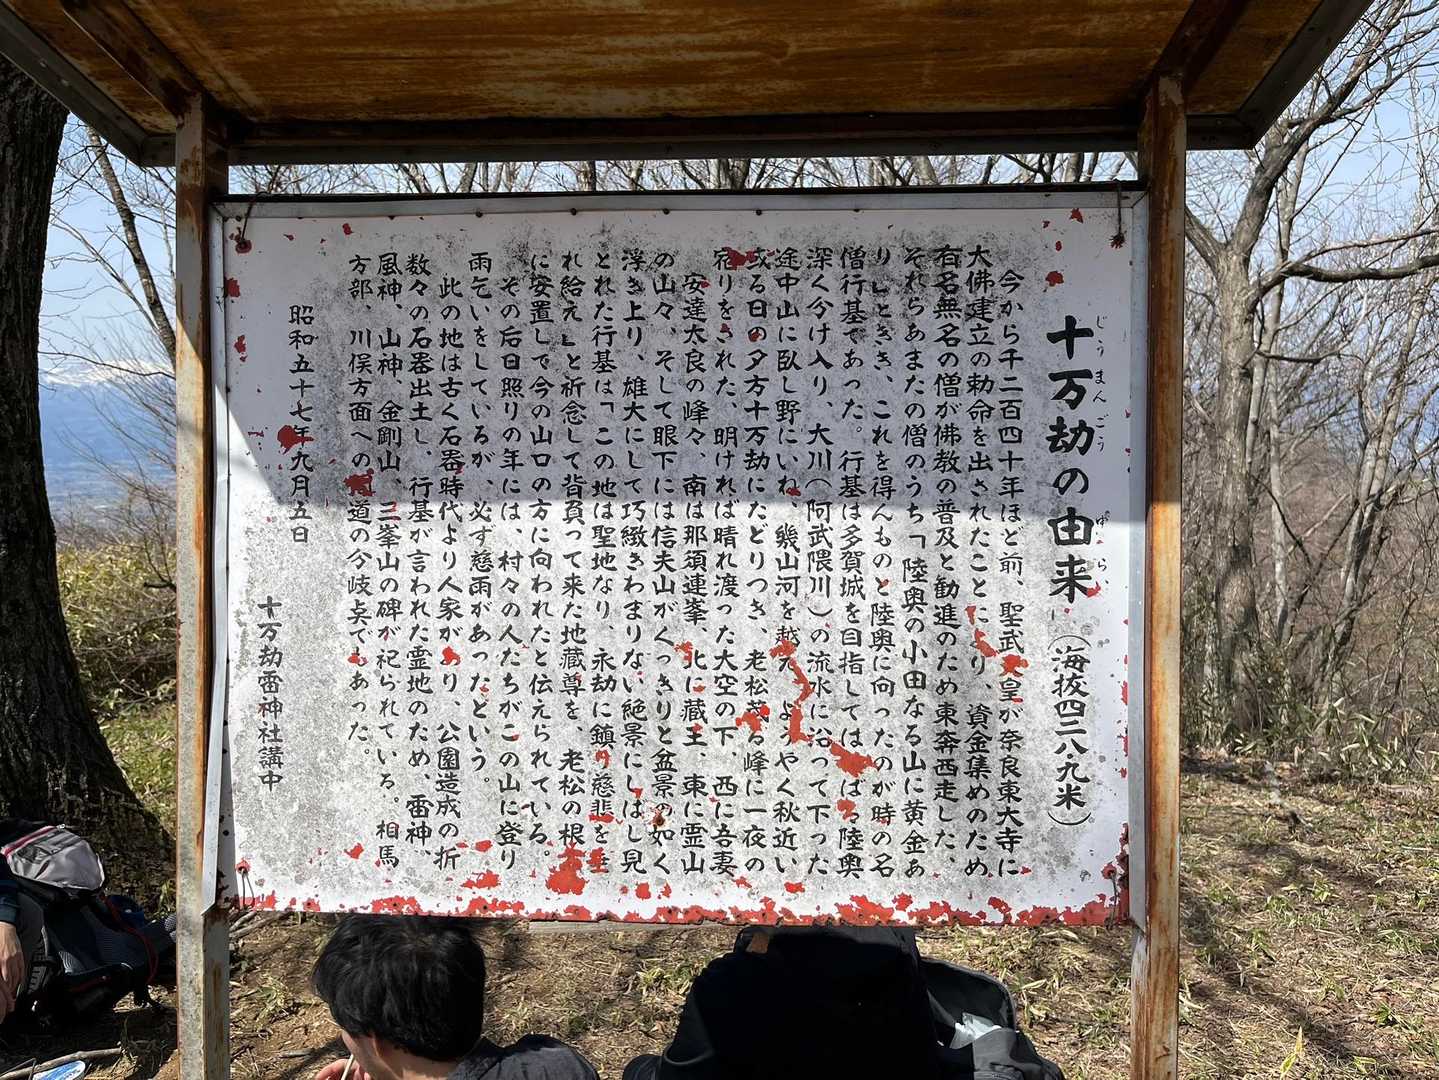 十万劫の由来(海抜四二八・九米)
じうまんごう ゆらい
今から千二百四十年ほど前、聖武天皇が奈良東大寺に
大佛建立の勅命を出されたことにより、資金集めのため
有名無名の僧が佛教の普及と勧進のため東奔西走した、
それらあまたの僧のうち「陸奥の小田なる山に黄金あ
り」ときき、これを得んものと陸奥に向ったのが時の名
僧行基であった。行基は多賀城を目指してはるばる陸奥
深く分け入り、大川(阿武隈川)の流水に沿って下った
途中山に臥し野にいね、幾山河を越え、ようやく秋近い
或る日の夕方十万劫にたどりつき、老松茂る峰に一夜の
宿りをされた、明ければ晴れ渡った大空の下、西に吾妻
安達太良の峰々、南は那須連峯、北に蔵王、東に霊山
の山々、そして眼下には信夫山がくっきりと盆景の如く
浮き上り、雄大にして巧緻きわまりない絶景にしばし見
とれた行基は「この地は聖地なり、永劫に鎮り慈悲を垂
れ給え」と祈念して背負って来た地蔵尊を、老松の根
に安置して今の山口の方に向われたと伝えられている。
その后日照りの年には、村々の人たちがこの山に登り
雨乞いをしているが、必ず慈雨があったという。
此の地は古く石器時代より人家があり、公園造成の折
数々の石器出土し、行基が言われた霊地のため、雷神、
風神、山神、金剛山、三峯山の碑が祀られている。相馬
方部、川俣方面への道の分岐点でもあった。
昭和五十七年九月五日
十万劫雷神社講中